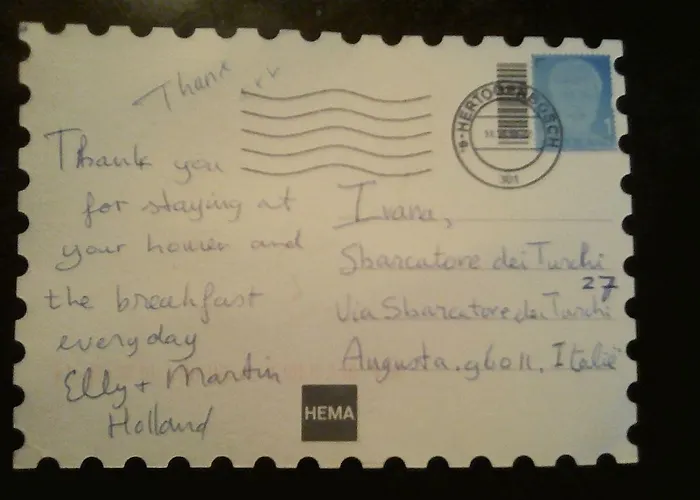 Thank
Thank you
for staying at
your houuer and
the breakfast
everyday
Elly + Martin
Holland
's-HERTOGENBOSCH
Ivana,
Sbarcatore dei Turchi
27
Via Sbarcatore dei Turchi
Augusta. 96011. Italië
HEMA